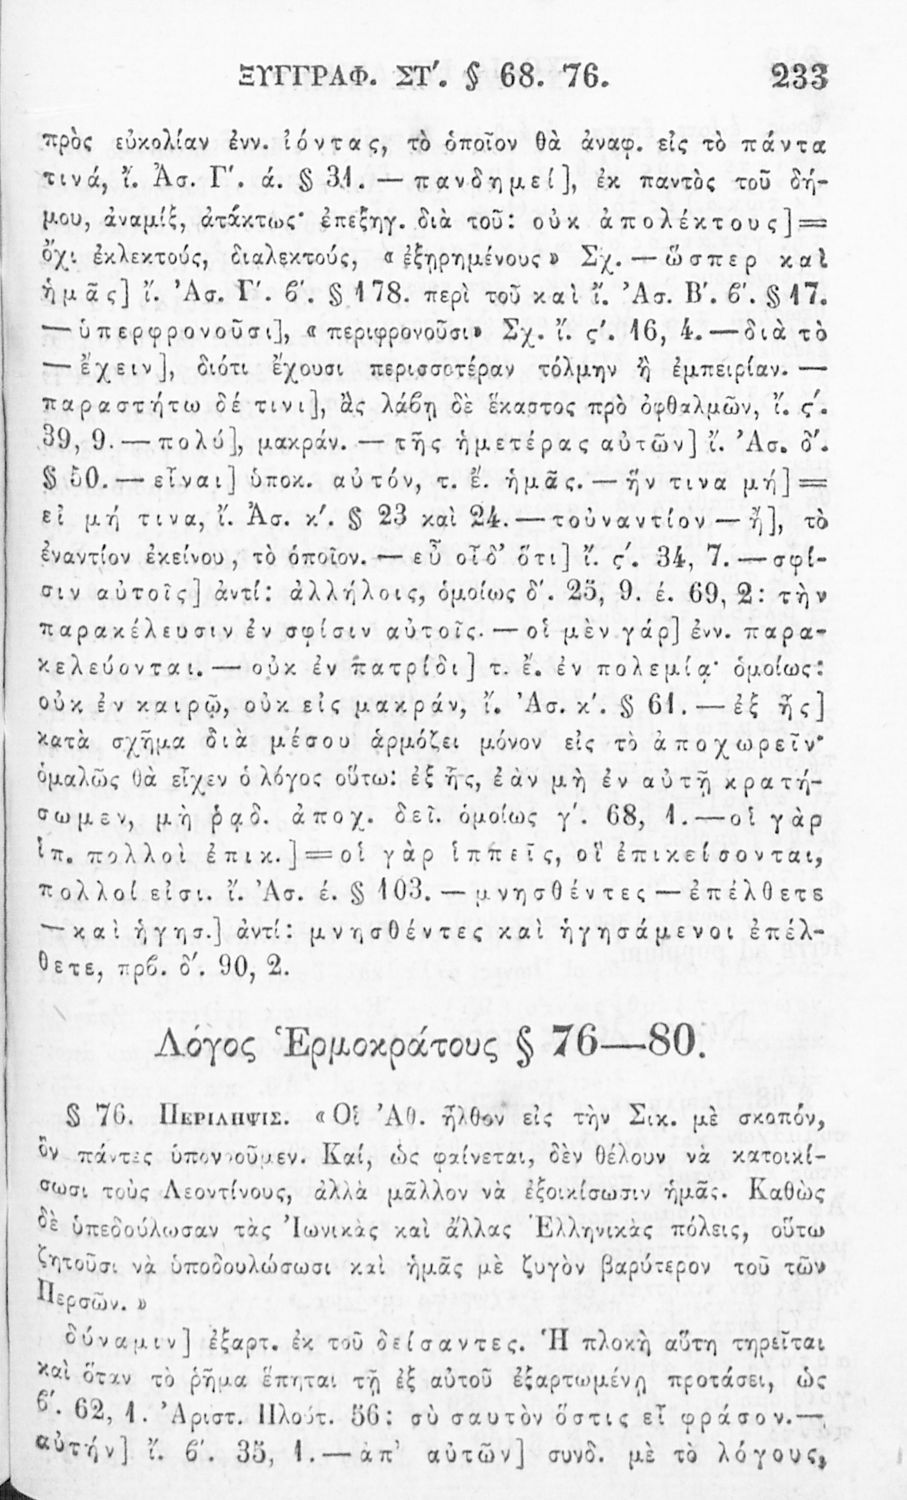 ΞΥΓΓΡΑΦ. ΣΤ'. § 68. 76. 233
πρὸς εὐκολίαν ἐνν. ἰόντας, τὸ ὁποῖον θὰ ἀναφ. εἰς τὸ πάντα
τινά, ἴ. Ἀσ. Γ'. ά. § 31. — πανδημεί], ἐκ παντὸς τοῦ δή-
μου, ἀναμίξ, ἀτάκτως· ἐπεξηγ. διὰ τοῦ: οὐκ ἀπολέκτους] =
ὄχι ἐκλεκτούς, διαλεκτούς, «ἐξῃρημένους» Σχ. — ὥσπερ καὶ
ἡμᾶς] ἴ. Ἀσ. Γ'. β'. § 178. περὶ τοῦ καὶ ἴ. Ἀσ. Β'. β'. § 17.
— ὑπερφρονοῦσι], «περιφρονοῦσι» Σχ. ἴ. ς'. 16, 4. — διὰ τὸ
— ἔχειν], διότι ἔχουσι περισσοτέραν τόλμην ἢ ἐμπειρίαν. —
παραστήτω δέ τινι], ἂς λάβῃ δὲ ἕκαστος πρὸ ὀφθαλμῶν, ἴ. ς'.
39, 9. — πολύ], μακράν. — τῆς ἡμετέρας αὐτῶν] ἴ. Ἀσ. δ'.
§ 50. — εἶναι] ὑποκ. αὐτόν, τ. ἔ. ἡμᾶς. — ἥν τινα μή] =
εἰ μή τινα, ἴ. Ἀσ. κ'. § 23 καὶ 24. — τοὐναντίον — ἤ], τὸ
ἐναντίον ἐκείνου, τὸ ὁποῖον. — εὖ οἶδ' ὅτι] ἴ. ς'. 34, 7. — σφί-
σιν αὐτοῖς] ἀντί: ἀλλήλοις, ὁμοίως δ'. 25, 9. έ. 69, 2: τὴν
παρακέλευσιν ἐν σφίσιν αὐτοῖς. — οἱ μὲν γάρ] ἐνν. παρα-
κελεύονται. — οὐκ ἐν πατρίδι] τ. ἔ. ἐν πολεμίᾳ· ὁμοίως:
οὐκ ἐν καιρῷ, οὐκ εἰς μακράν, ἴ. Ἀσ. κ'. § 61. — ἐξ ἧς]
κατὰ σχῆμα διὰ μέσου ἁρμόζει μόνον εἰς τὸ ἀποχωρεῖν·
ὁμαλῶς θὰ εἶχεν ὁ λόγος οὕτω: ἐξ ἧς, ἐὰν μὴ ἐν αὐτῇ κρατή-
σωμεν, μὴ ῥᾳδ. ἀποχ. δεῖ. ὁμοίως γ'. 68, 1. — οἱ γὰρ
ἱπ. πολλοὶ ἐπικ.] = οἱ γὰρ ἱππεῖς, οἳ ἐπικείσονται,
πολλοί εἰσι. ἴ. Ἀσ. έ. § 103. — μνησθέντες — ἐπέλθετε
— καὶ ἡγησ.] ἀντί: μνησθέντες καὶ ἡγησάμενοι ἐπέλ-
θετε, πρβ. δ'. 90, 2.
Λόγος Ἑρμοκράτους § 76—80.
§ 76. ΠΕΡΙΛΗΨΙΣ. «Οἱ Ἀθ. ἦλθον εἰς τὴν Σικ. μὲ σκοπόν,
ὃν πάντες ὑπονοοῦμεν. Καί, ὡς φαίνεται, δὲν θέλουν νὰ κατοικί-
σωσι τοὺς Λεοντίνους, ἀλλὰ μᾶλλον νὰ ἐξοικίσωσιν ἡμᾶς. Καθὼς
δὲ ὑπεδούλωσαν τὰς Ἰωνικὰς καὶ ἄλλας Ἑλληνικὰς πόλεις, οὕτω
ζητοῦσι νὰ ὑποδουλώσωσι καὶ ἡμᾶς μὲ ζυγὸν βαρύτερον τοῦ τῶν
Περσῶν.»
δύναμιν] ἐξαρτ. ἐκ τοῦ δείσαντες. Ἡ πλοκὴ αὕτη τηρεῖται
καὶ ὅταν τὸ ῥῆμα ἕπηται τῇ ἐξ αὐτοῦ ἐξαρτωμένῃ προτάσει, ὡς
β'. 62, 1. Ἀριστ. Πλούτ. 56: σὺ σαυτὸν ὅστις εἶ φράσον. —
αὐτήν] ἴ. β'. 35, 1. — ἀπ' αὐτῶν] συνδ. μὲ τὸ λόγους,